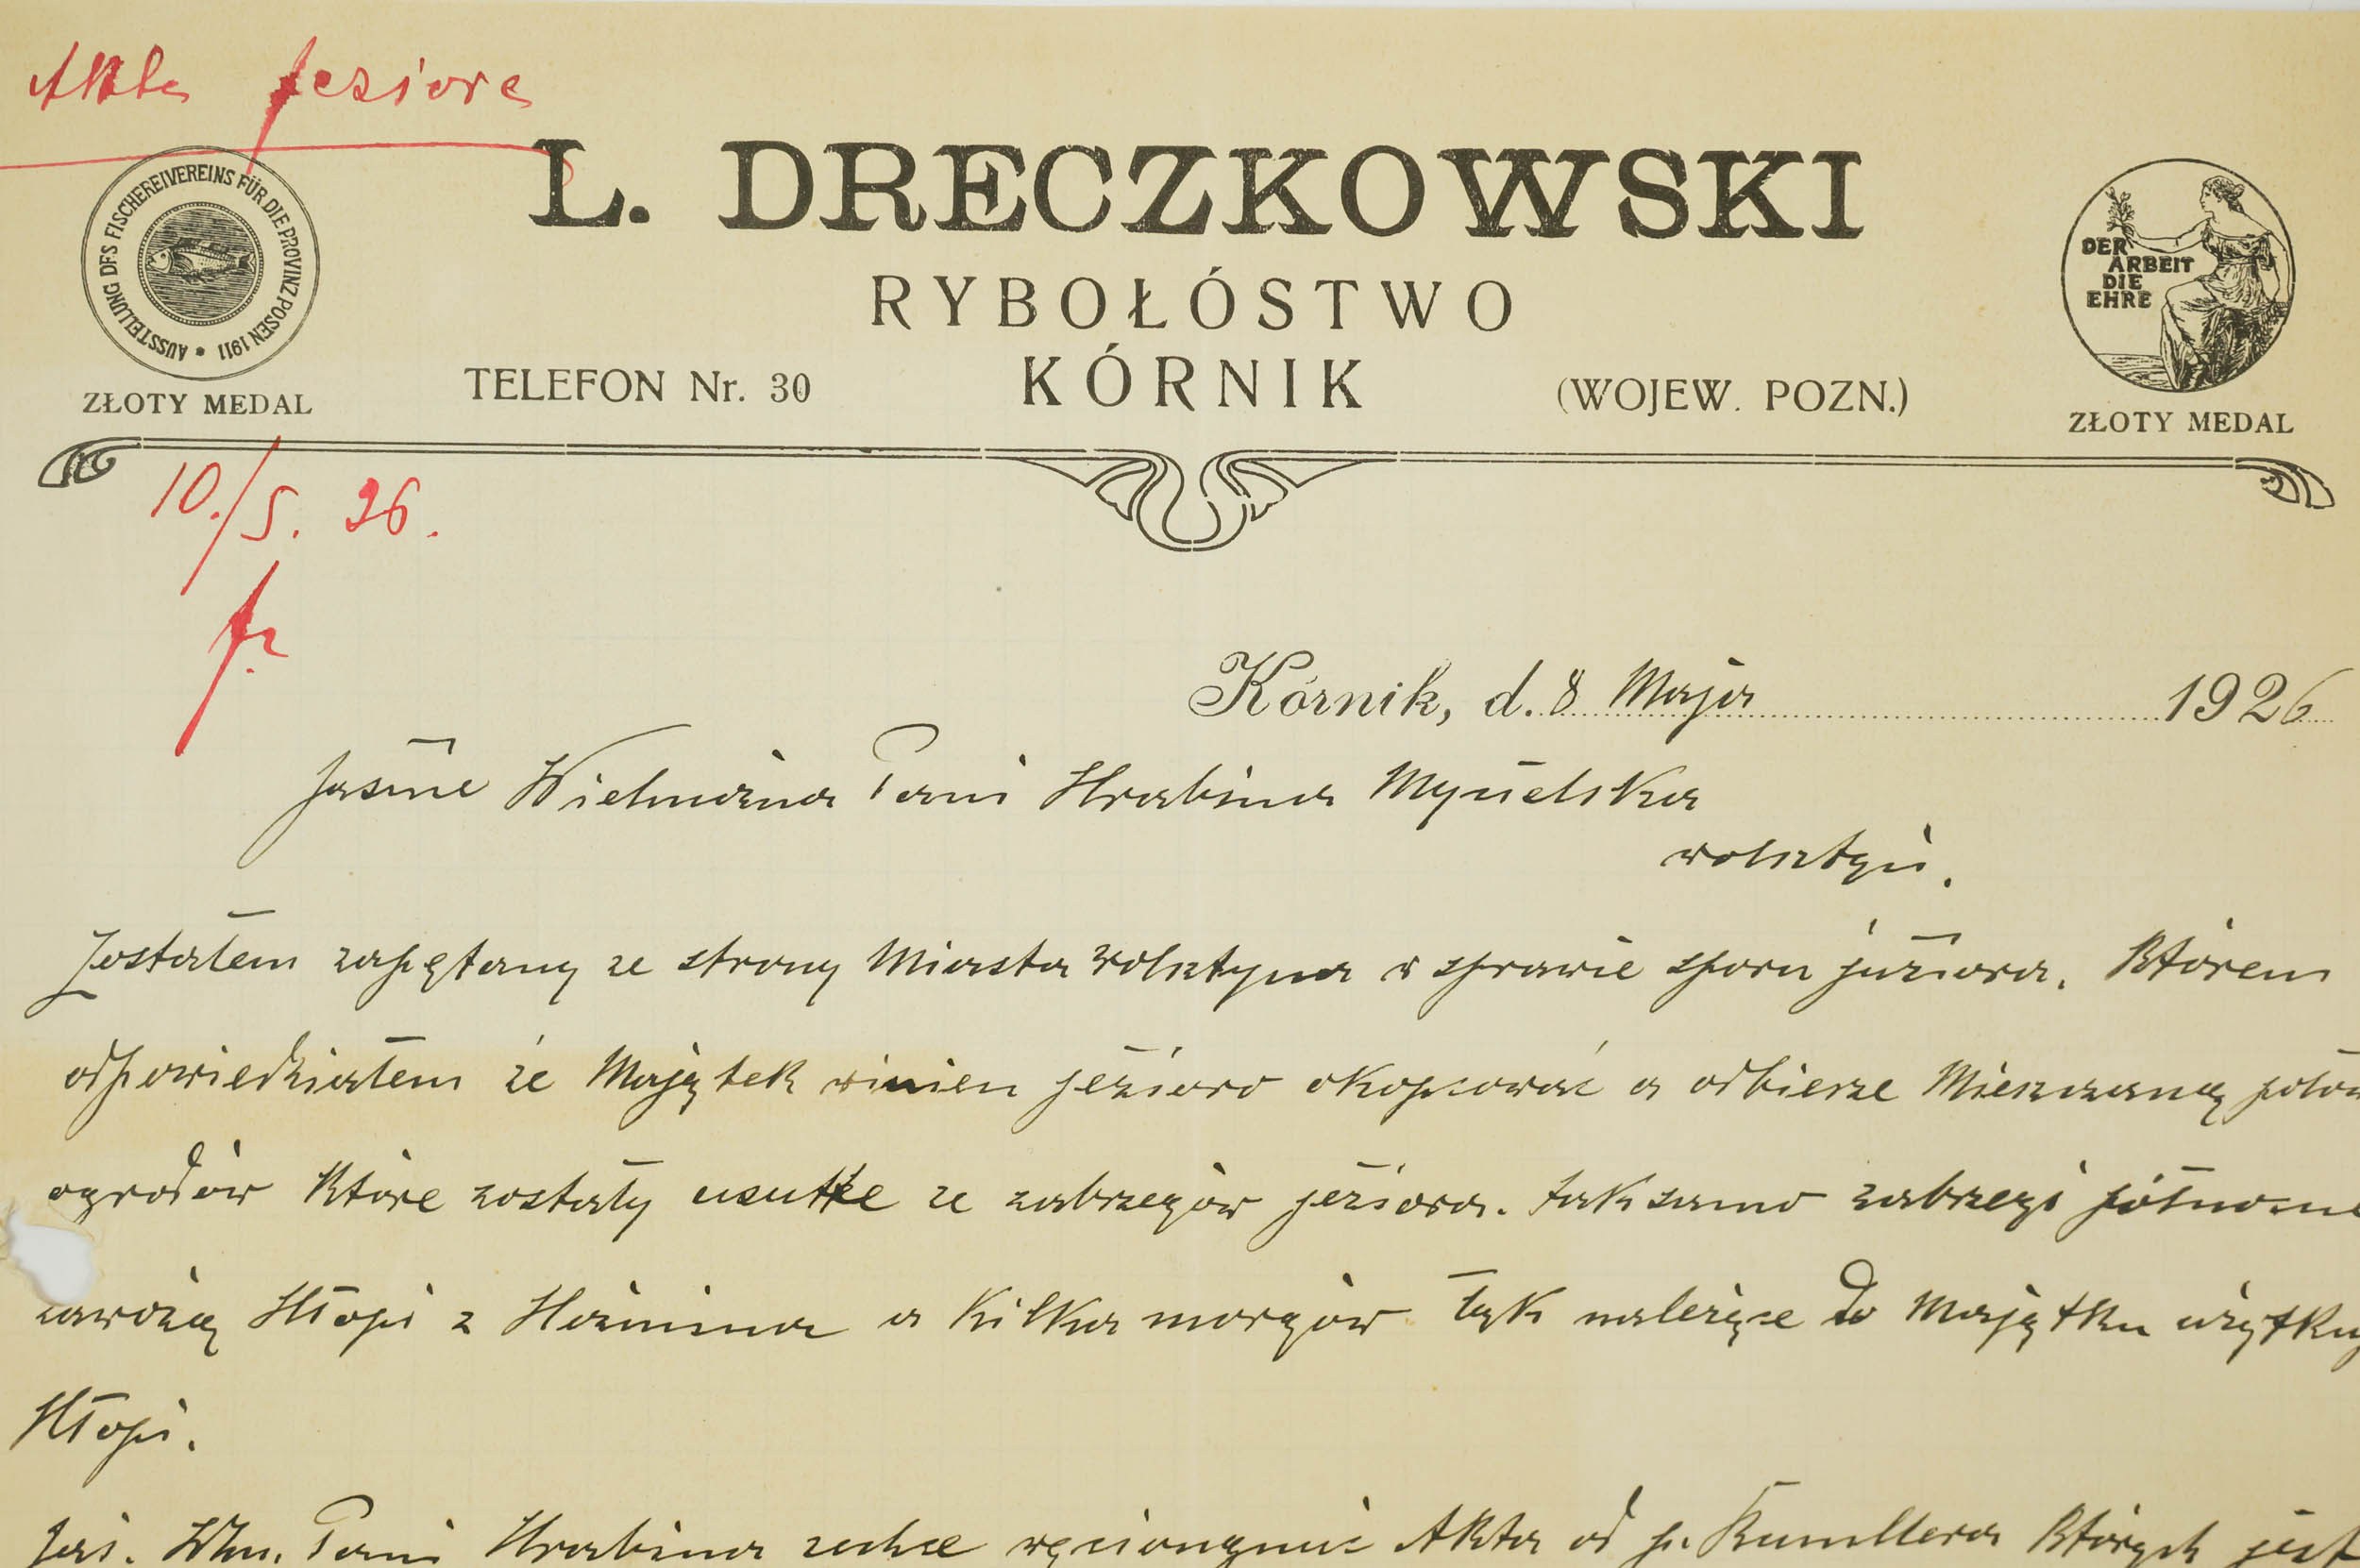 Akta jeziora
L. DRECZKOWSKI
RYBOŁÓSTWO
TELEFON Nr. 30 KÓRNIK (WOJEW. POZN.)
AUSSTELLUNG DES FISCHEREIVEREINS FÜR DIE PROVINZ POSEN 1911 *
ZŁOTY MEDAL
DER
ARBEIT
DIE
EHRE
ZŁOTY MEDAL
10./5. 26.
Kórnik, d. 8 Maja 1926
Jaśnie Wielmożna Pani Hrabina Mycielska
Wolsztyn.
Zostałem zapytany ze strony Miasta Wolsztyna w sprawie sporu jeziora. Którem
odpowiedziałem że Majątek winien jezioro okopcować a odbierze Mieszczaną
ogrodów które zostały ze zabrzegów jeziora. tak samo zabrzegi północne
zawożą Hłopi z a kilka morgów łąk należące do Majątku
Hłopi.
Jaś. Wlm. Pani Hrabina zechce Akta od p. których jest